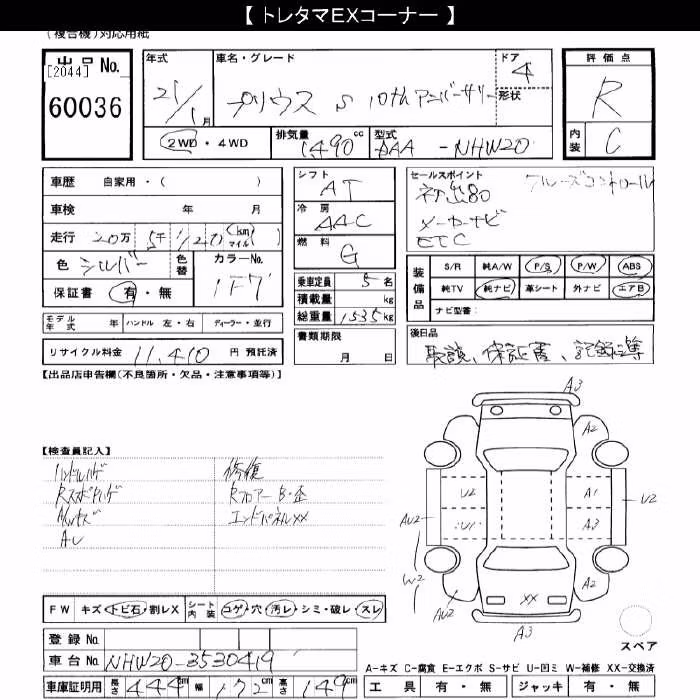 【 トレタマEXコーナー 】
(複合機)対応用紙
出品 No. [2044]
60036
年式 21/1月
車名・グレード プリウス S 10thアニバーサリー
ドア 4
形状
2WD・4WD
排気量 1490 cc
型式 DAA-NHW20
評価点 R
内装 C
車歴 自家用・( )
車検 年 月
走行 20万5千120 (km マイル)
色 シルバー 色替 カラーNo. 1F7
保証書 有・無
モデル年式 年 ハンドル 左・右 ディーラー・並行
リサイクル料金 11,410 円 預託済
シフト AT
冷房 AAC
燃料 G
乗車定員 5名
積載量 kg
総重量 1535kg
書類期限 月 日
セールスポイント クルーズコントロール
メーカーナビ
ETC
装備品 S/R 純A/W P/S P/W ABS
純TV 純ナビ 革シート 外ナビ エアB
ナビ型番:
後日品
取説、保証書、記録簿
【出品店申告欄(不良箇所・欠品・注意事項等)】
【検査員記入】
ハンドルハゲ 修復
Rフロアー B・歪
エンドパネルXX
AU
A3
A2
U2 A1 U2
AU2 U1 A3
W2
A2
AU2 XX
A3
スペア
FW キズ・トビ石・割レX シート内装 コゲ・穴・汚レ・シミ・破レ・スレ
登録 No.
車台 No. NHW20-3530419
車庫証明用 長さ 444cm 幅 172cm 高さ 149cm
A-キズ C-腐食 E-エクボ S-サビ U-凹ミ W-補修 X-要交換 XX-交換済
工具 有・無 ジャッキ 有・無